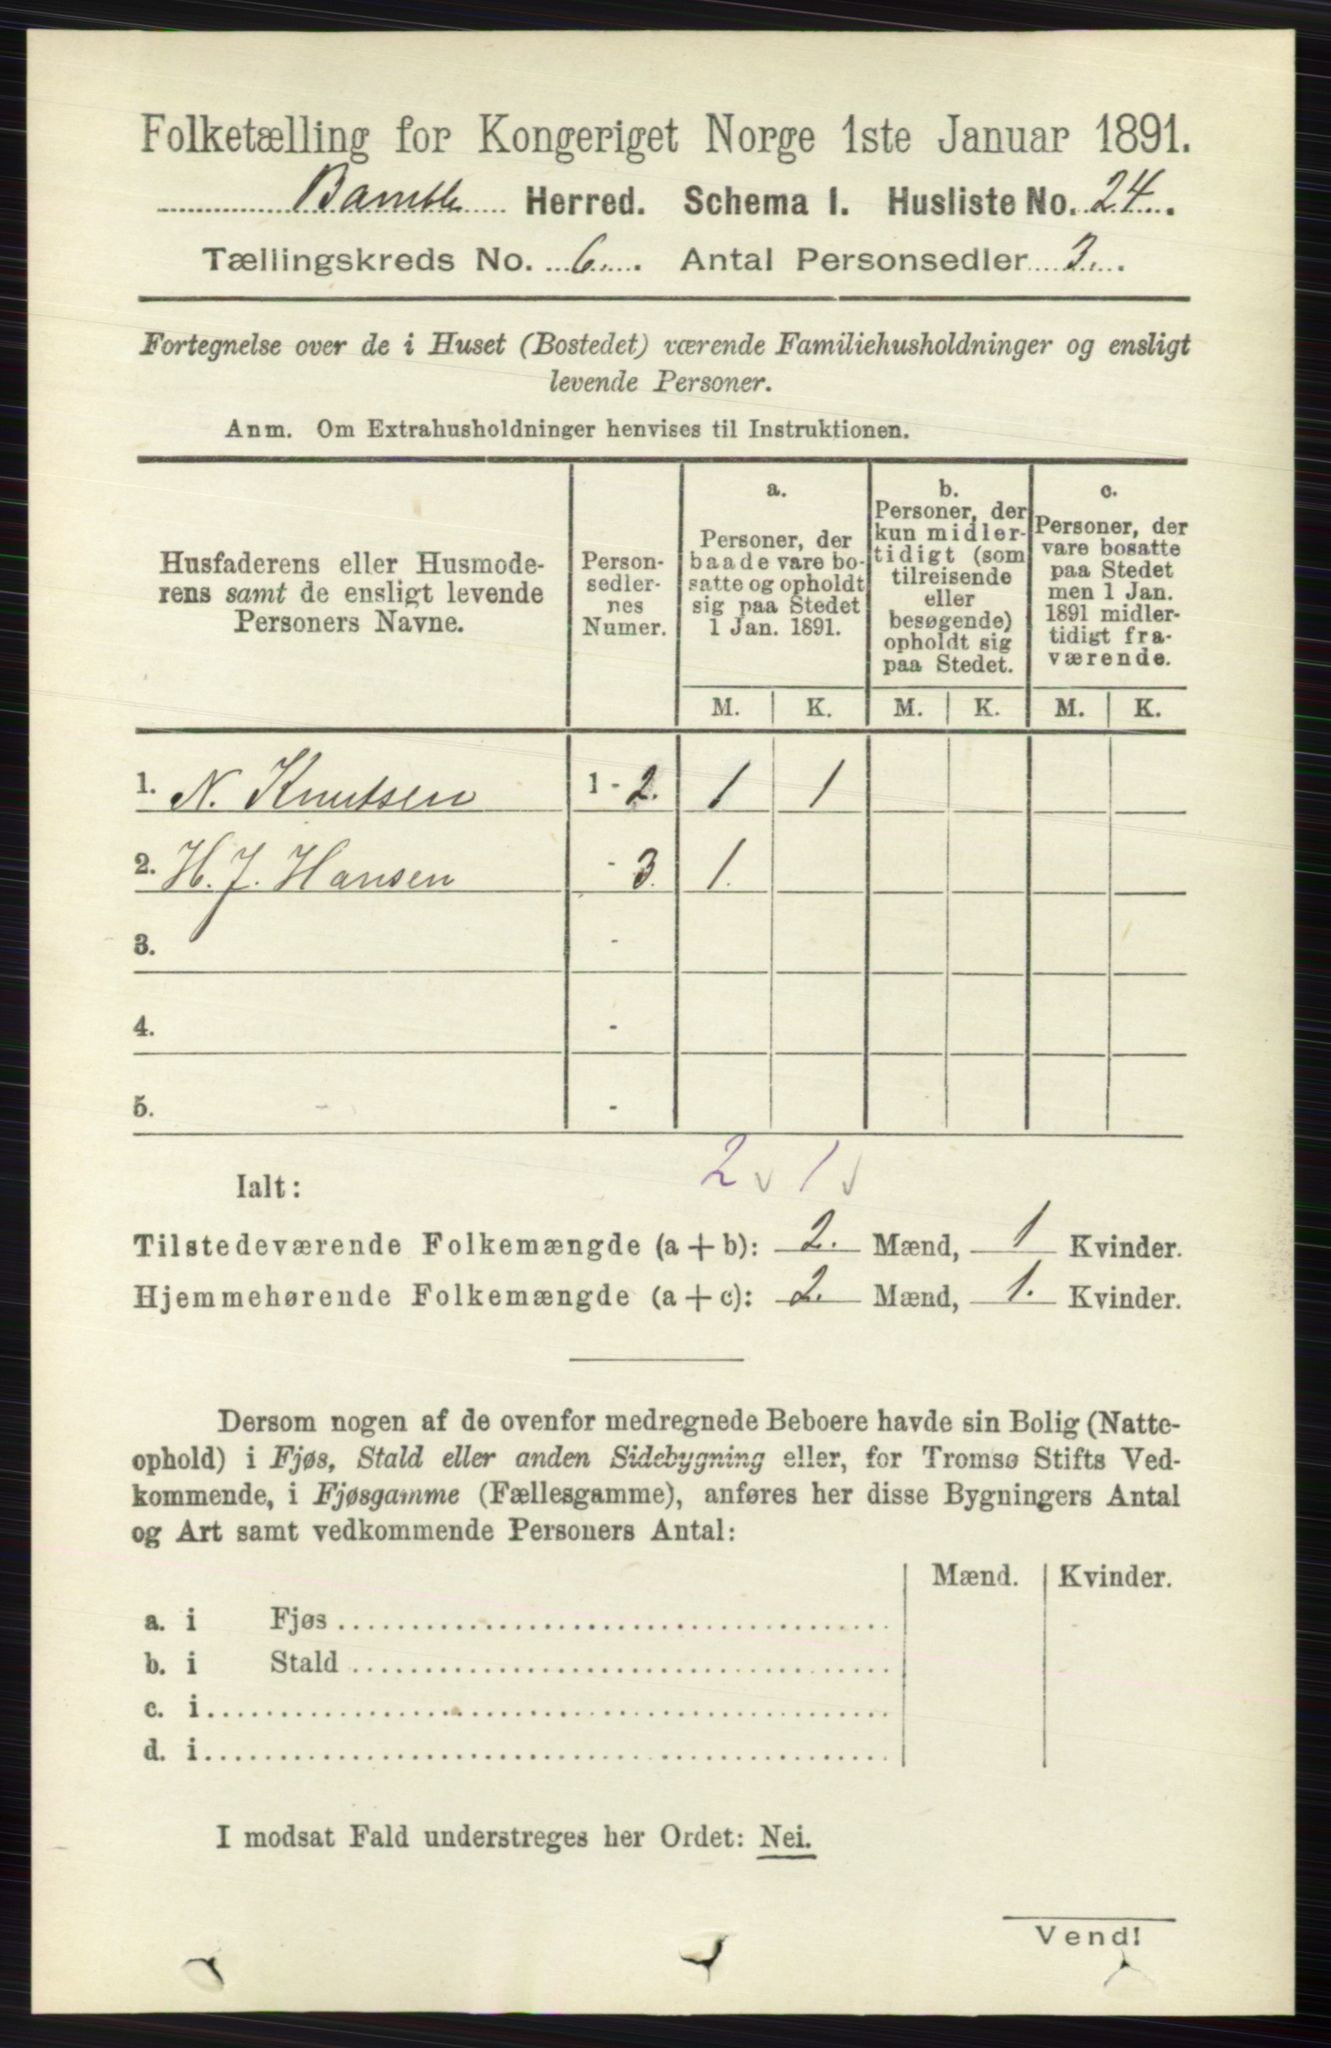 Folketælling for Kongeriget Norge 1ste Januar 1891.
Bamble Herred. Schema I. Husliste No. 24.
Tællingskreds No. 6. Antal Personsedler 3.
Fortegnelse over de i Huset (Bostedet) værende Familiehusholdninger og ensligt
levende Personer.
Anm. Om Extrahusholdninger henvises til Instruktionen.
Husfaderens eller Husmode-
rens samt de ensligt levende
Personers Navne.
Person-
sedler-
nes
Numer.
a.
Personer, der
baade vare bo-
satte og opholdt
sig paa Stedet
1 Jan. 1891.
b.
Personer, der
kun midler-
tidigt (som
tilreisende
eller
besøgende)
opholdt sig
paa Stedet.
c.
Personer, der
vare bosatte
paa Stedet
men 1 Jan.
1891 midler-
tidigt fra-
værende.
M. K. M. K. M. K.
1. N. Knutsen 1 - 2. 1 1
2. H. J. Hansen - 3. 1.
3. -
4. -
5. -
2 1
Ialt:
Tilstedeværende Folkemængde (a + b): 2. Mænd, 1 Kvinder.
Hjemmehørende Folkemængde (a + c): 2. Mænd, 1. Kvinder.
Dersom nogen af de ovenfor medregnede Beboere havde sin Bolig (Natte-
ophold) i Fjøs, Stald eller anden Sidebygning eller, for Tromsø Stifts Ved-
kommende, i Fjøsgamme (Fællesgamme), anføres her disse Bygningers Antal
og Art samt vedkommende Personers Antal:
Mænd. Kvinder.
a. i Fjøs
b. i Stald
c. i
d. i
I modsat Fald understreges her Ordet: Nei.
Vend!